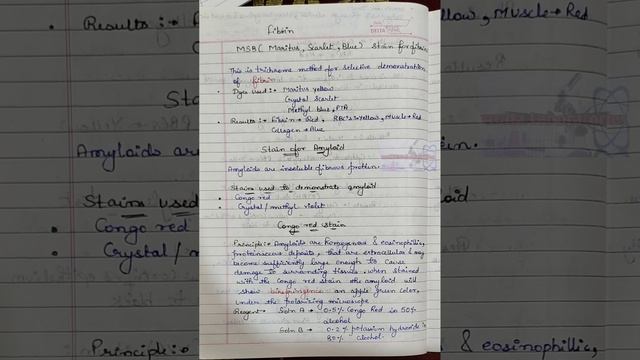 Fibrin
MSB( Maritus, Scarlet, Blue) stain for fibrin
This is trichrome method for selective demonstration
of fibrin
• Dyes used :- Maritus yellow
Crystal Scarlet
Methyl blue, PTA
• Results :- Fibrin → Red, RBC's → Yellow, Muscle → Red
Collagen → Blue
Stain for Amyloid
Amyloids are insoluble fibrous protein.
Stains used to demonstrate amyloid
• Congo red
• Crystal / methyl violet
Congo red stain
Principle :- Amyloids are homogenous & eosinophillic,
proteinaceous deposits, that are extracellular & may
become sufficiently large enough to cause
damage to surranding tissues. when stained
with the congo red stain the amyloid will
show birefringence an apple green color,
under the polarizing microscope
Reagent → Soln A → 0.5% Congo Red in 50%
alcohol
Soln B → 0.2% potassium hydroxide in
80% alcohol.